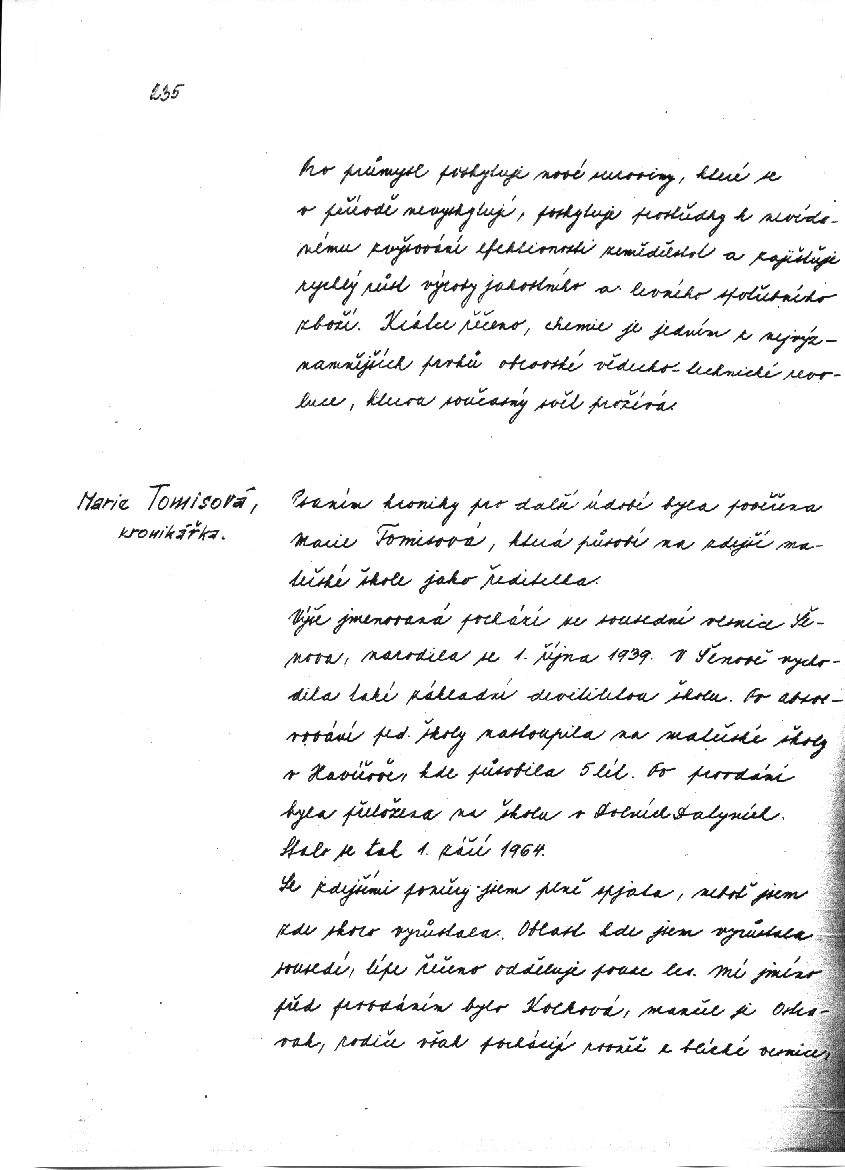 235
Pro průmysl poskytuje nové suroviny, které se
v přírodě nevyskytují, poskytuje prostředky k nevída-
nému zvyšování efektivnosti zemědělství a zajišťuje
rychlý růst výroby jakostního a levného spotřebního
zboží. Krátce řečeno, chemie je jedním z nejvýz-
namnějších prvků obrovské vědecko-technické revo-
luce, kterou současný svět prožívá.
Marie Tomisová,
kronikářka.
Psaním kroniky pro další údobí byla pověřena
Marie Tomisová, která působí na zdejší ma-
teřské škole jako ředitelka.
Výše jmenovaná pochází ze sousední vesnice Še-
nova, narodila se 1. října 1939. V Šenově vycho-
dila také základní devítiletou školu. Po absol-
vování ped. školy nastoupila na mateřské školy
v Havířově, kde působila 5 let. Po provdání
byla přeložena na školu v Dolních Datyních.
Stalo se tak 1. září 1964.
Se zdejšími poměry jsem plně spjata, neboť jsem
zde skoro vyrůstala. Oblast kde jsem vyrůstala
sousedí, lépe řečeno odděluje pouze les. Mé jméno
před provdáním bylo Kočková, manžel je Ostra-
vak, rodiče však pocházejí rovněž z blízké vesnice,